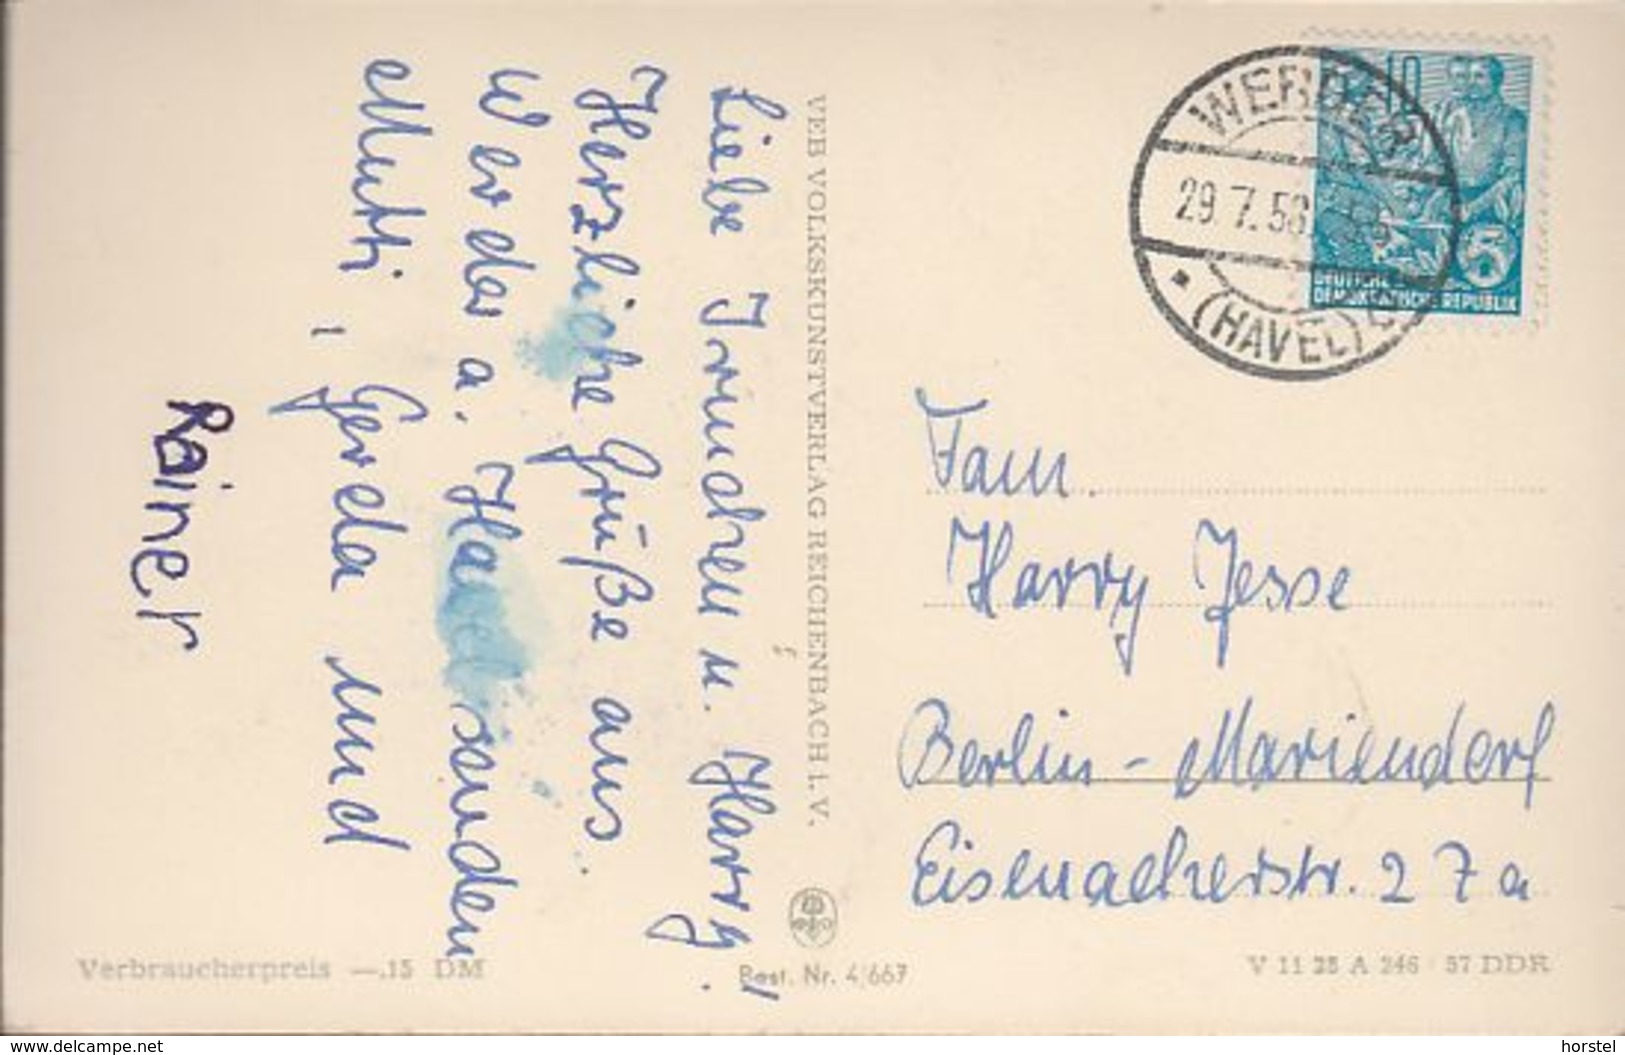 Liebe Irmchen u. Harry!
Herzliche Grüße aus
Werder a. Havel senden
Mutti, Gerda und
Rainer
VEB VOLKSKUNSTVERLAG REICHENBACH I. V.
WERDER
29.7.58
(HAVEL)
10
5
DEUTSCHE
DEMOKRATISCHE REPUBLIK
Fam.
Harry Jesse
Berlin - Mariendorf
Eisenacherstr. 27a
Verbraucherpreis —.15 DM
Best. Nr. 4/667
V 11 28 A 246 57 DDR
www.delcampe.net
horstel